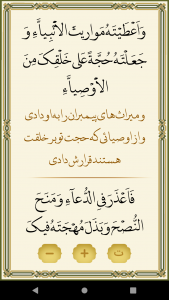 وَاَعْطَیْتَهُ مَوَاریثَ الاَْنْبِیآَءِ وَ
جَعَلْتَهُ حُجَّةً عَلی خَلْقِکَ مِنَ
الاَْوْصِیآَءِ
و میراث‌های پیمبران را به او دادی
و از اوصیائی که حجت تو بر خلقت
هستند قرارش دادی
فَاَعْذَرَ فیِ الدُّعآَءِ وَمَنَحَ
النُّصْحَ وَبَذَلَ مُهْجَتَهُ فیکَ
ت